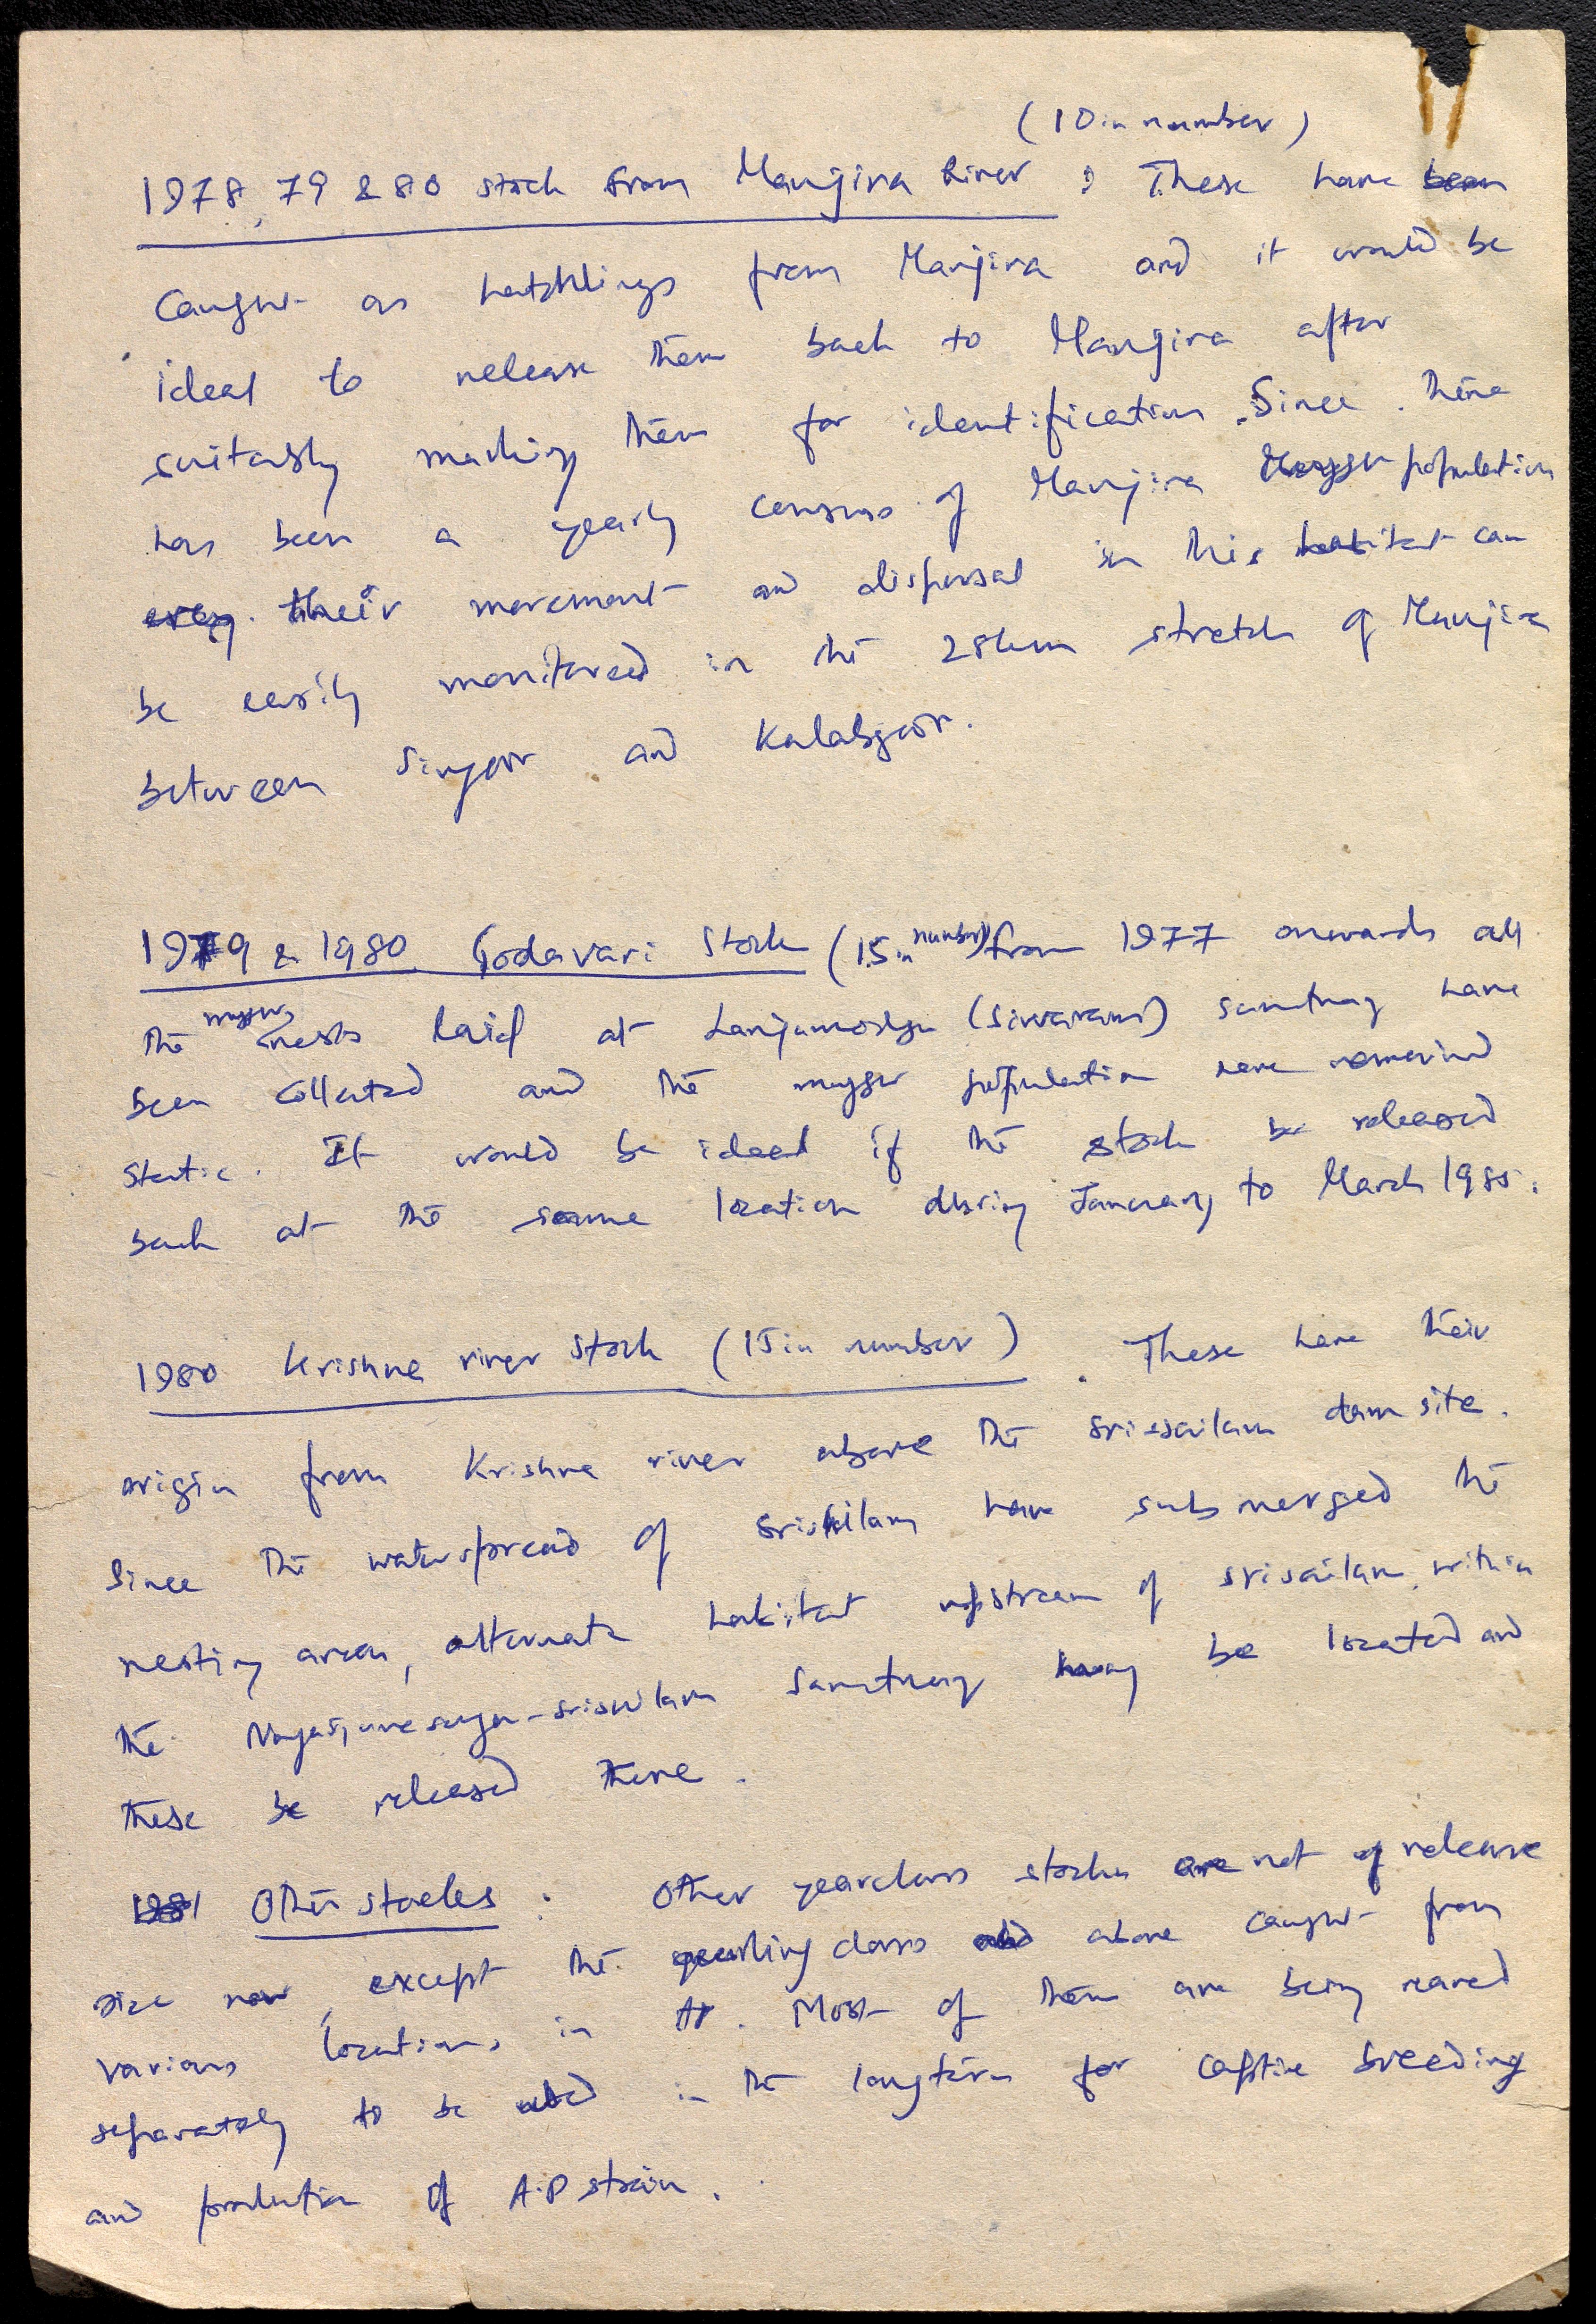 (10 in number)
1978, 79 & 80 stock from Manjira River : These have been
caught as hatchlings from Manjira and it would be
ideal to release them back to Manjira after
suitably marking them for identification. Since there
has been a yearly census of Manjira Mugger population
their movement and dispersal in this habitat can
be easily monitored in the 28km stretch of Manjira
between Singoor and Kalabgoor.
1979 & 1980 Godavari Stock (15 in number) from 1977 onwards all
the mugger nests laid at Lanjamadgu (Sivvaram) sanctuary have
been collected and the mugger population have remained
static. It would be ideal if the stock be released
back at the same location during January to March 1985.
1980 Krishna river stock (15 in number). These have their
origin from Krishna river above the Srisailam dam site.
Since the waterspread of Srisailam have submerged the
nesting areas, alternate habitat upstream of Srisailam within
the Nagarjunasagar-Srisailam Sanctuary may be located and
these be released there.
1981 Other stocks : Other yearclass stocks are not of release
size now, except the yearling class and above caught from
various locations in AP. Most of them are being reared
separately to be used in the longterm for captive breeding
and production of A.P strain.